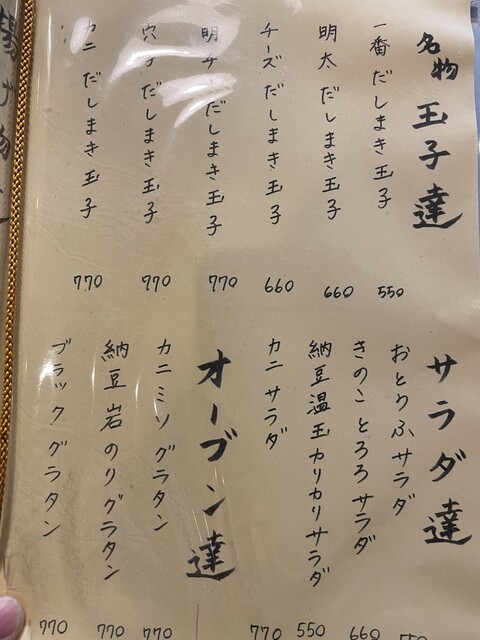 名物 玉子達
一番だしまき玉子 550
明太だしまき玉子 660
チーズだしまき玉子 660
明チーだしまき玉子 770
穴子だしまき玉子 770
カニだしまき玉子 770
サラダ達
おとうふサラダ
きのこととろろサラダ 660
納豆温玉カリカリサラダ 550
カニサラダ 770
オーブン達
カニミソグラタン 770
納豆岩のりグラタン 770
ブラックグラタン 770